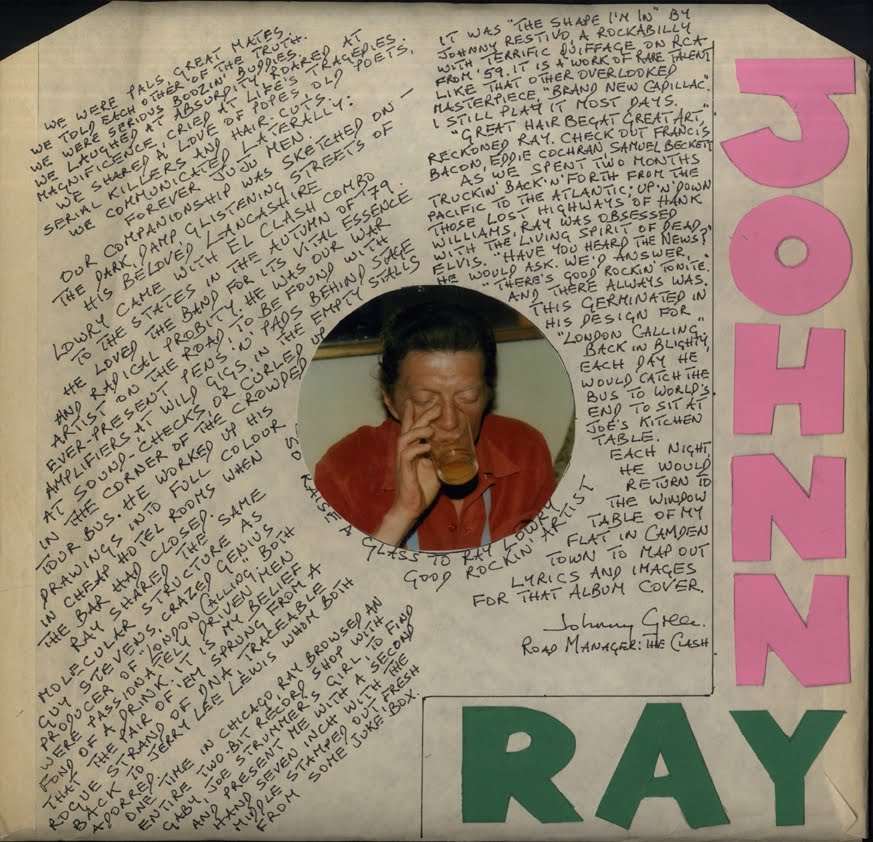 WE WERE PALS, GREAT MATES
WE TOLD EACH OTHER OF THE TRUTH.
WE WERE SERIOUS BOOZIN' BUDDIES.
WE LAUGHED AT ABSURDITY, ROARED AT
MAGNIFICENCE, CRIED AT LIFE'S TRAGEDIES.
WE SHARED A LOVE OF POPES, OLD POETS,
SERIAL KILLERS AND HAIR-CUTS.
WE COMMUNICATED LATERALLY:
FOREVER JUJU MEN.
OUR COMPANIONSHIP WAS SKETCHED ON –
THE DARK, DAMP, GLISTENING STREETS OF
HIS BELOVED LANCASHIRE
LOWRY CAME WITH EL CLASH COMBO
TO THE STATES IN THE AUTUMN OF '79.
HE LOVED THE BAND FOR ITS VITAL ESSENCE
AND RADICAL PROBITY. HE WAS OUR WAR
ARTIST ON THE ROAD, TO BE FOUND WITH
EVER-PRESENT PENS 'N' PADS BEHIND STAGE
AMPLIFIERS AT WILD GIGS, IN THE EMPTY STALLS
AT SOUND-CHECKS, OR CURLED UP
IN THE CORNER OF THE CROWDED
TOUR BUS. HE WORKED UP HIS
DRAWINGS INTO FULL COLOUR
IN CHEAP HOTEL ROOMS WHEN
THE BAR HAD CLOSED.
RAY SHARED THE SAME
MOLECULAR STRUCTURE AS
GUY STEVENS, CRAZED GENIUS
PRODUCER OF 'LONDON CALLING'. BOTH
WERE PASSIONATELY DRIVEN MEN
FOND OF A DRINK. IT IS MY BELIEF
THAT THE PAIR OF 'EM SPRUNG FROM A
ROGUE STRAND OF DNA TRACEABLE
BACK TO JERRY LEE LEWIS WHOM BOTH
ADORED.
ONE TIME IN CHICAGO RAY BROWSED AN
ENTIRE TWO BIT RECORD SHOP WITH
GABY, JOE STRUMMER'S GIRL, TO FIND
AND PRESENT ME WITH A SECOND
HAND SEVEN INCH WITH THE
MIDDLE STAMPED OUT FRESH
FROM SOME JUKE BOX.
IT WAS "THE SHAPE I'M IN" BY
JOHNNY RESTIVO, A ROCKABILLY
WITH TERRIFIC QUIFFAGE, ON RCA
FROM '59. IT IS A WORK OF RARE TALENT
LIKE THAT OTHER OVERLOOKED
MASTERPIECE "BRAND NEW CADILLAC."
I STILL PLAY IT MOST DAYS.
"GREAT HAIR BEGAT GREAT ART,"
RECKONED RAY. CHECK OUT FRANCIS
BACON, EDDIE COCHRAN, SAMUEL BECKETT
AS WE SPENT TWO MONTHS
TRUCKIN' BACK 'N' FORTH FROM THE
PACIFIC TO THE ATLANTIC, UP 'N' DOWN
THOSE LOST HIGHWAYS OF HANK
WILLIAMS, RAY WAS OBSESSED
WITH THE LIVING SPIRIT OF DEAD
ELVIS. "HAVE YOU HEARD THE NEWS?"
HE WOULD ASK. WE'D ANSWER,
"THERE'S GOOD ROCKIN' TONITE."
AND THERE ALWAYS WAS.
THIS GERMINATED IN
HIS DESIGN FOR
"LONDON CALLING."
BACK IN BLIGHTY,
EACH DAY HE
WOULD CATCH THE
BUS TO WORLD'S
END TO SIT AT
JOE'S KITCHEN
TABLE.
EACH NIGHT,
HE WOULD
RETURN TO
THE WINDOW
TABLE OF MY
FLAT IN CAMDEN
TOWN TO MAP OUT
LYRICS AND IMAGES
FOR THAT ALBUM COVER.
SO RAISE A GLASS TO RAY LOWRY
GOOD ROCKIN' ARTIST
Johnny Green.
ROAD MANAGER: THE CLASH
JOHNN
RAY